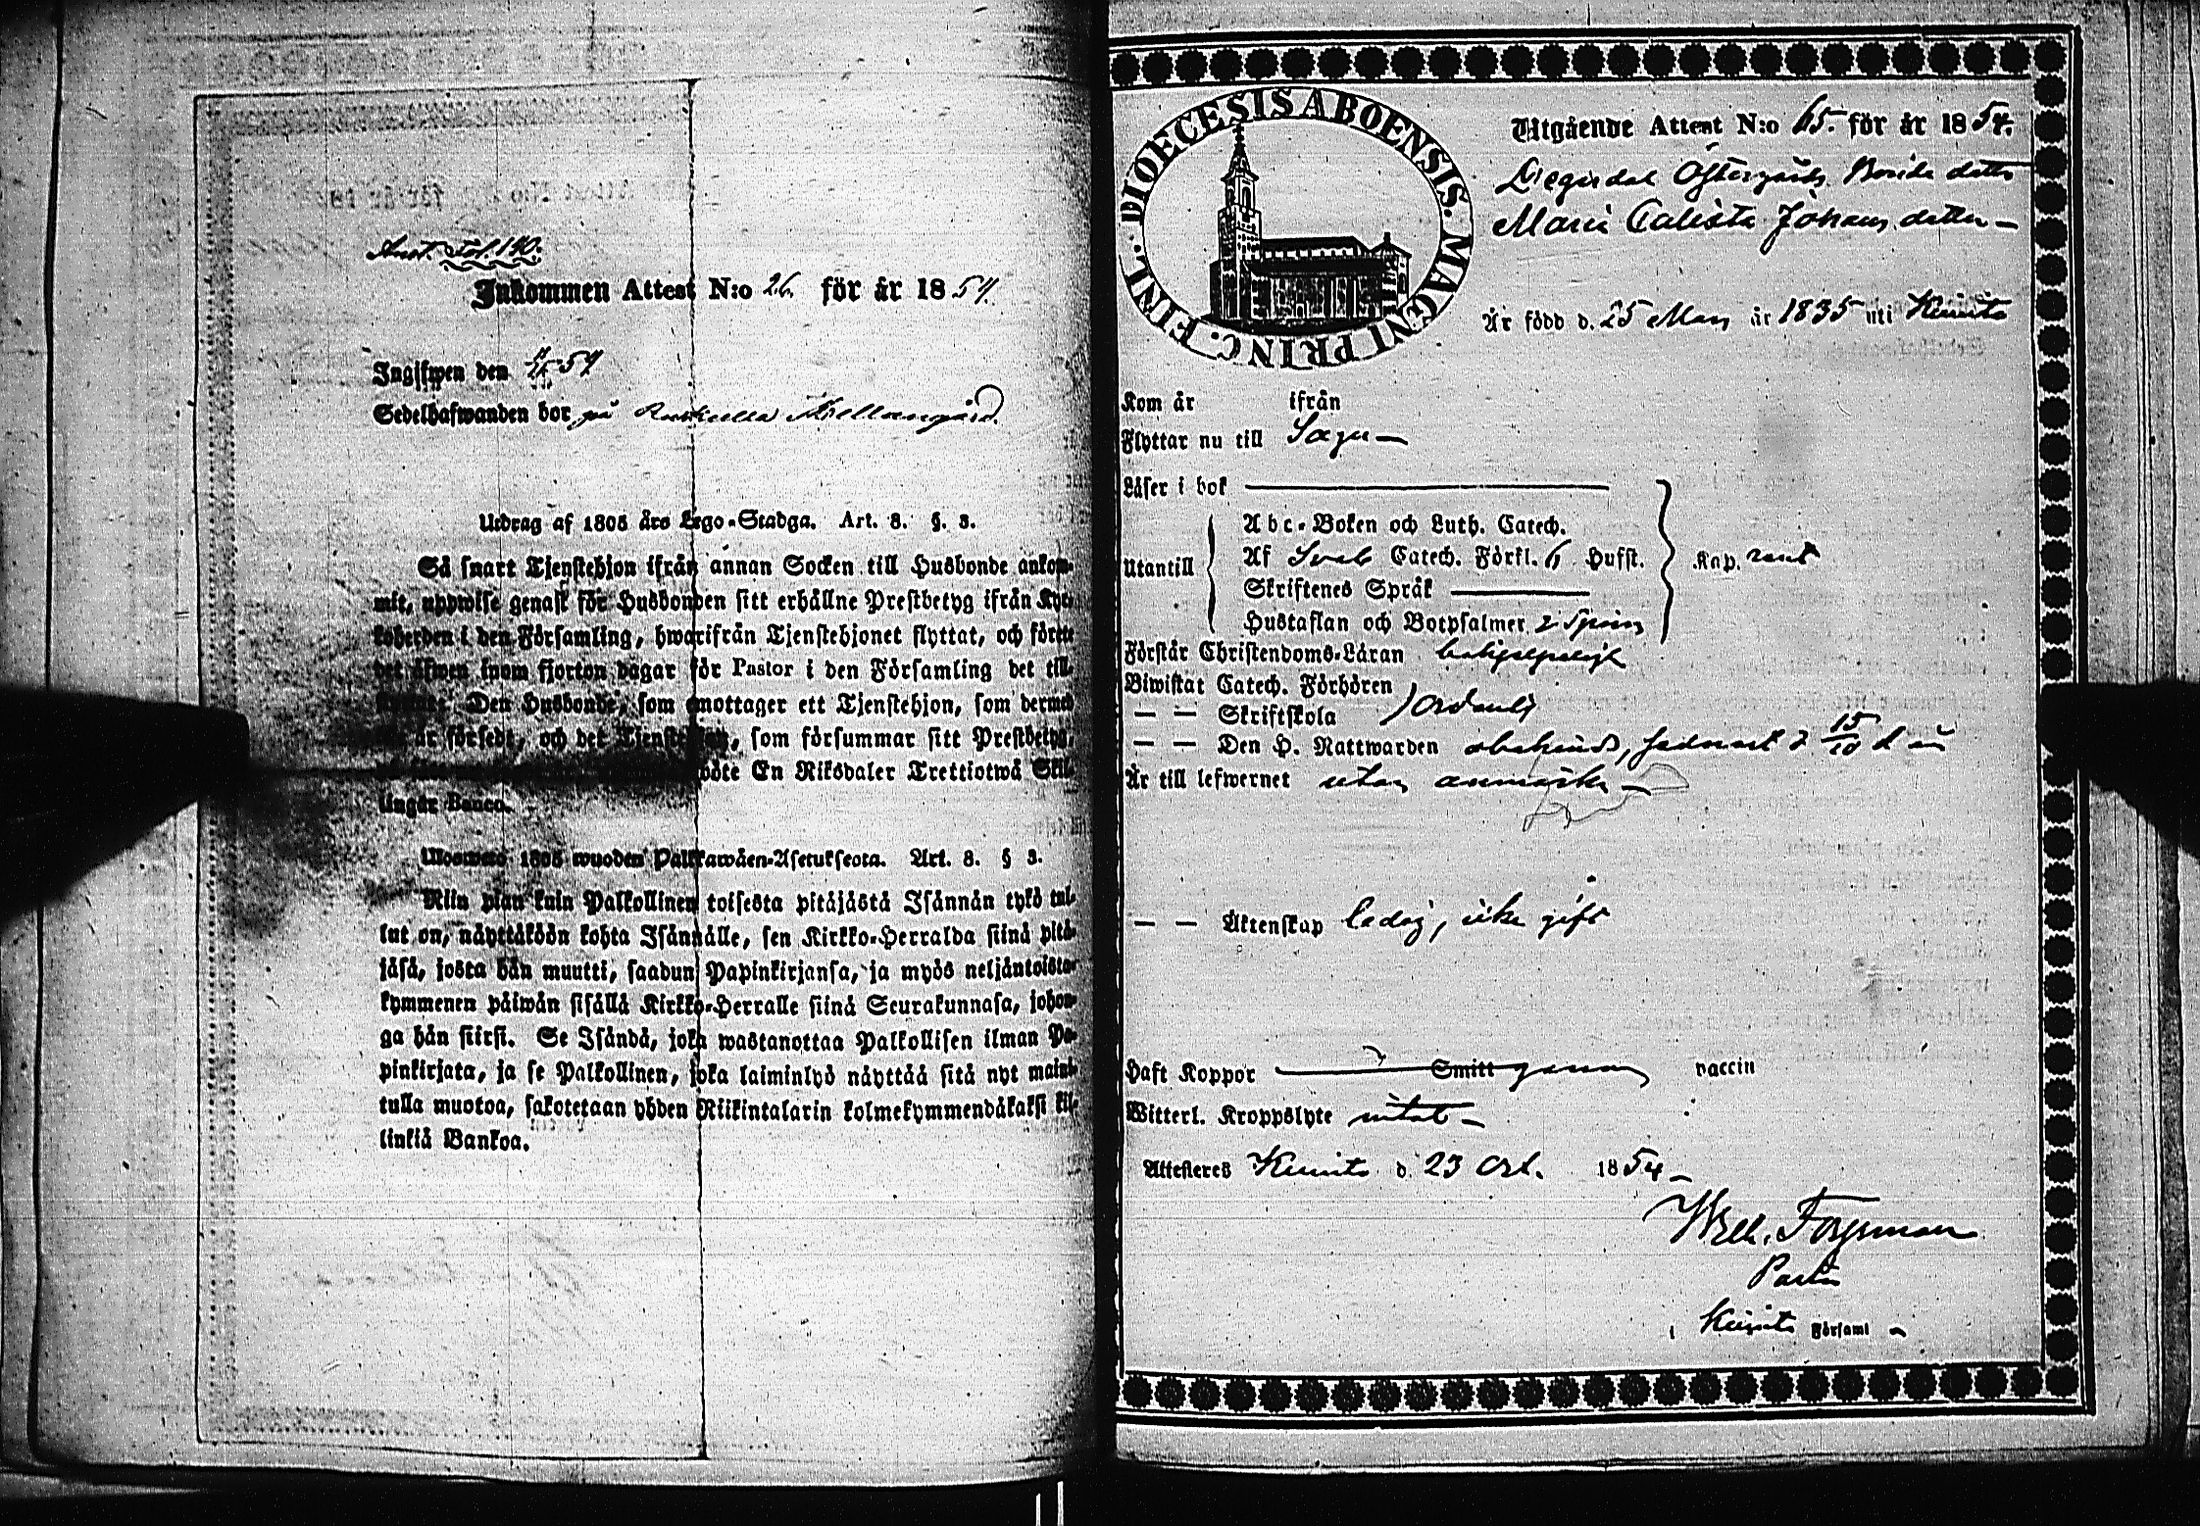 Anot. Fol. 140.
Inkommen Attest N:o 26. för år 1854.
Ingifwen den 54
Sedelhafwanden bor på Mellangård
Utdrag af 1805 års Lego-Stadga. Art. 8. §. 3.
Så snart Tjenstehjon ifrån annan Socken till Husbonde ankom-
mit, uppwise genast för Husbonden sitt erhållne Prestbetyg ifrån Kyr-
koherden i den Församling, hwarifrån Tjenstehjonet flyttat, och förete
det äfwen inom fjorton dagar för Pastor i den Församling det till-
flyttat. Den Husbonde, som emottager ett Tjenstehjon, som dermed
är försedt, och det Tjenstehjon, som försummar sitt Prestbetyg,
böte En Riksdaler Trettiotwå Skil-
lingar Banco.
Wuoden 1805 wuoden Palkkawäen-Asetuksesta. Art. 8. § 3.
Niin pian kuin Palkollinen toisesta pitäjästä Isännän tykö tul-
lut on, näyttäköön kohta Isännälle, sen Kirkko-Herralda siinä pitä-
jäsä, josta hän muutti, saadun Papinkirjansa, ja myös neljäntoista-
kymmenen päiwän sisällä Kirkko-Herralle siinä Seurakunnasa, johon-
ga hän siirst. Se Isändä, joka wastanottaa Palkollisen ilman Pa-
pinkirjata, ja se Palkollinen, joka laiminlyö näyttää sitä nyt maini-
tulla muotoa, sakotetaan yhden Riikintalarin kolmekymmendäkaksi kil-
linkiä Bankoa.
FINL. DIOECESIS ABOENSIS. MAGNI PRINC.
Utgående Attest N:o 65. för år 1854.
Östergårds Bonde dotter
Maria Calista Johans dotter —
Är född d. 25 Mars år 1835 uti Kimito
Kom år ifrån
Flyttar nu till Sagu —
Läser i bok
Abc-Boken och Luth. Catech.
Utantill Af Sveb Catech. Förkl. 6 Hufst. Kap. rent
Skriftenes Språk
Hustaflan och Botpsalmer. 2 Spörs
Förstår Christendoms-Läran
Biwistat Catech. Förhören
— — Skriftskola ordentl
— — Den H. Nattwarden obehindr, sednast d 15/10 d. år
Är till lefwernet utan anmärkn —
— — Äktenskap ledig, icke gift
Haft Koppor Smitt genom vaccin
Witterl. Kroppslyte intet —
Attesteres Kimito d. 23 Oct. 1854 —
Wilh. Forsman
Pastor
i Kimito Församl